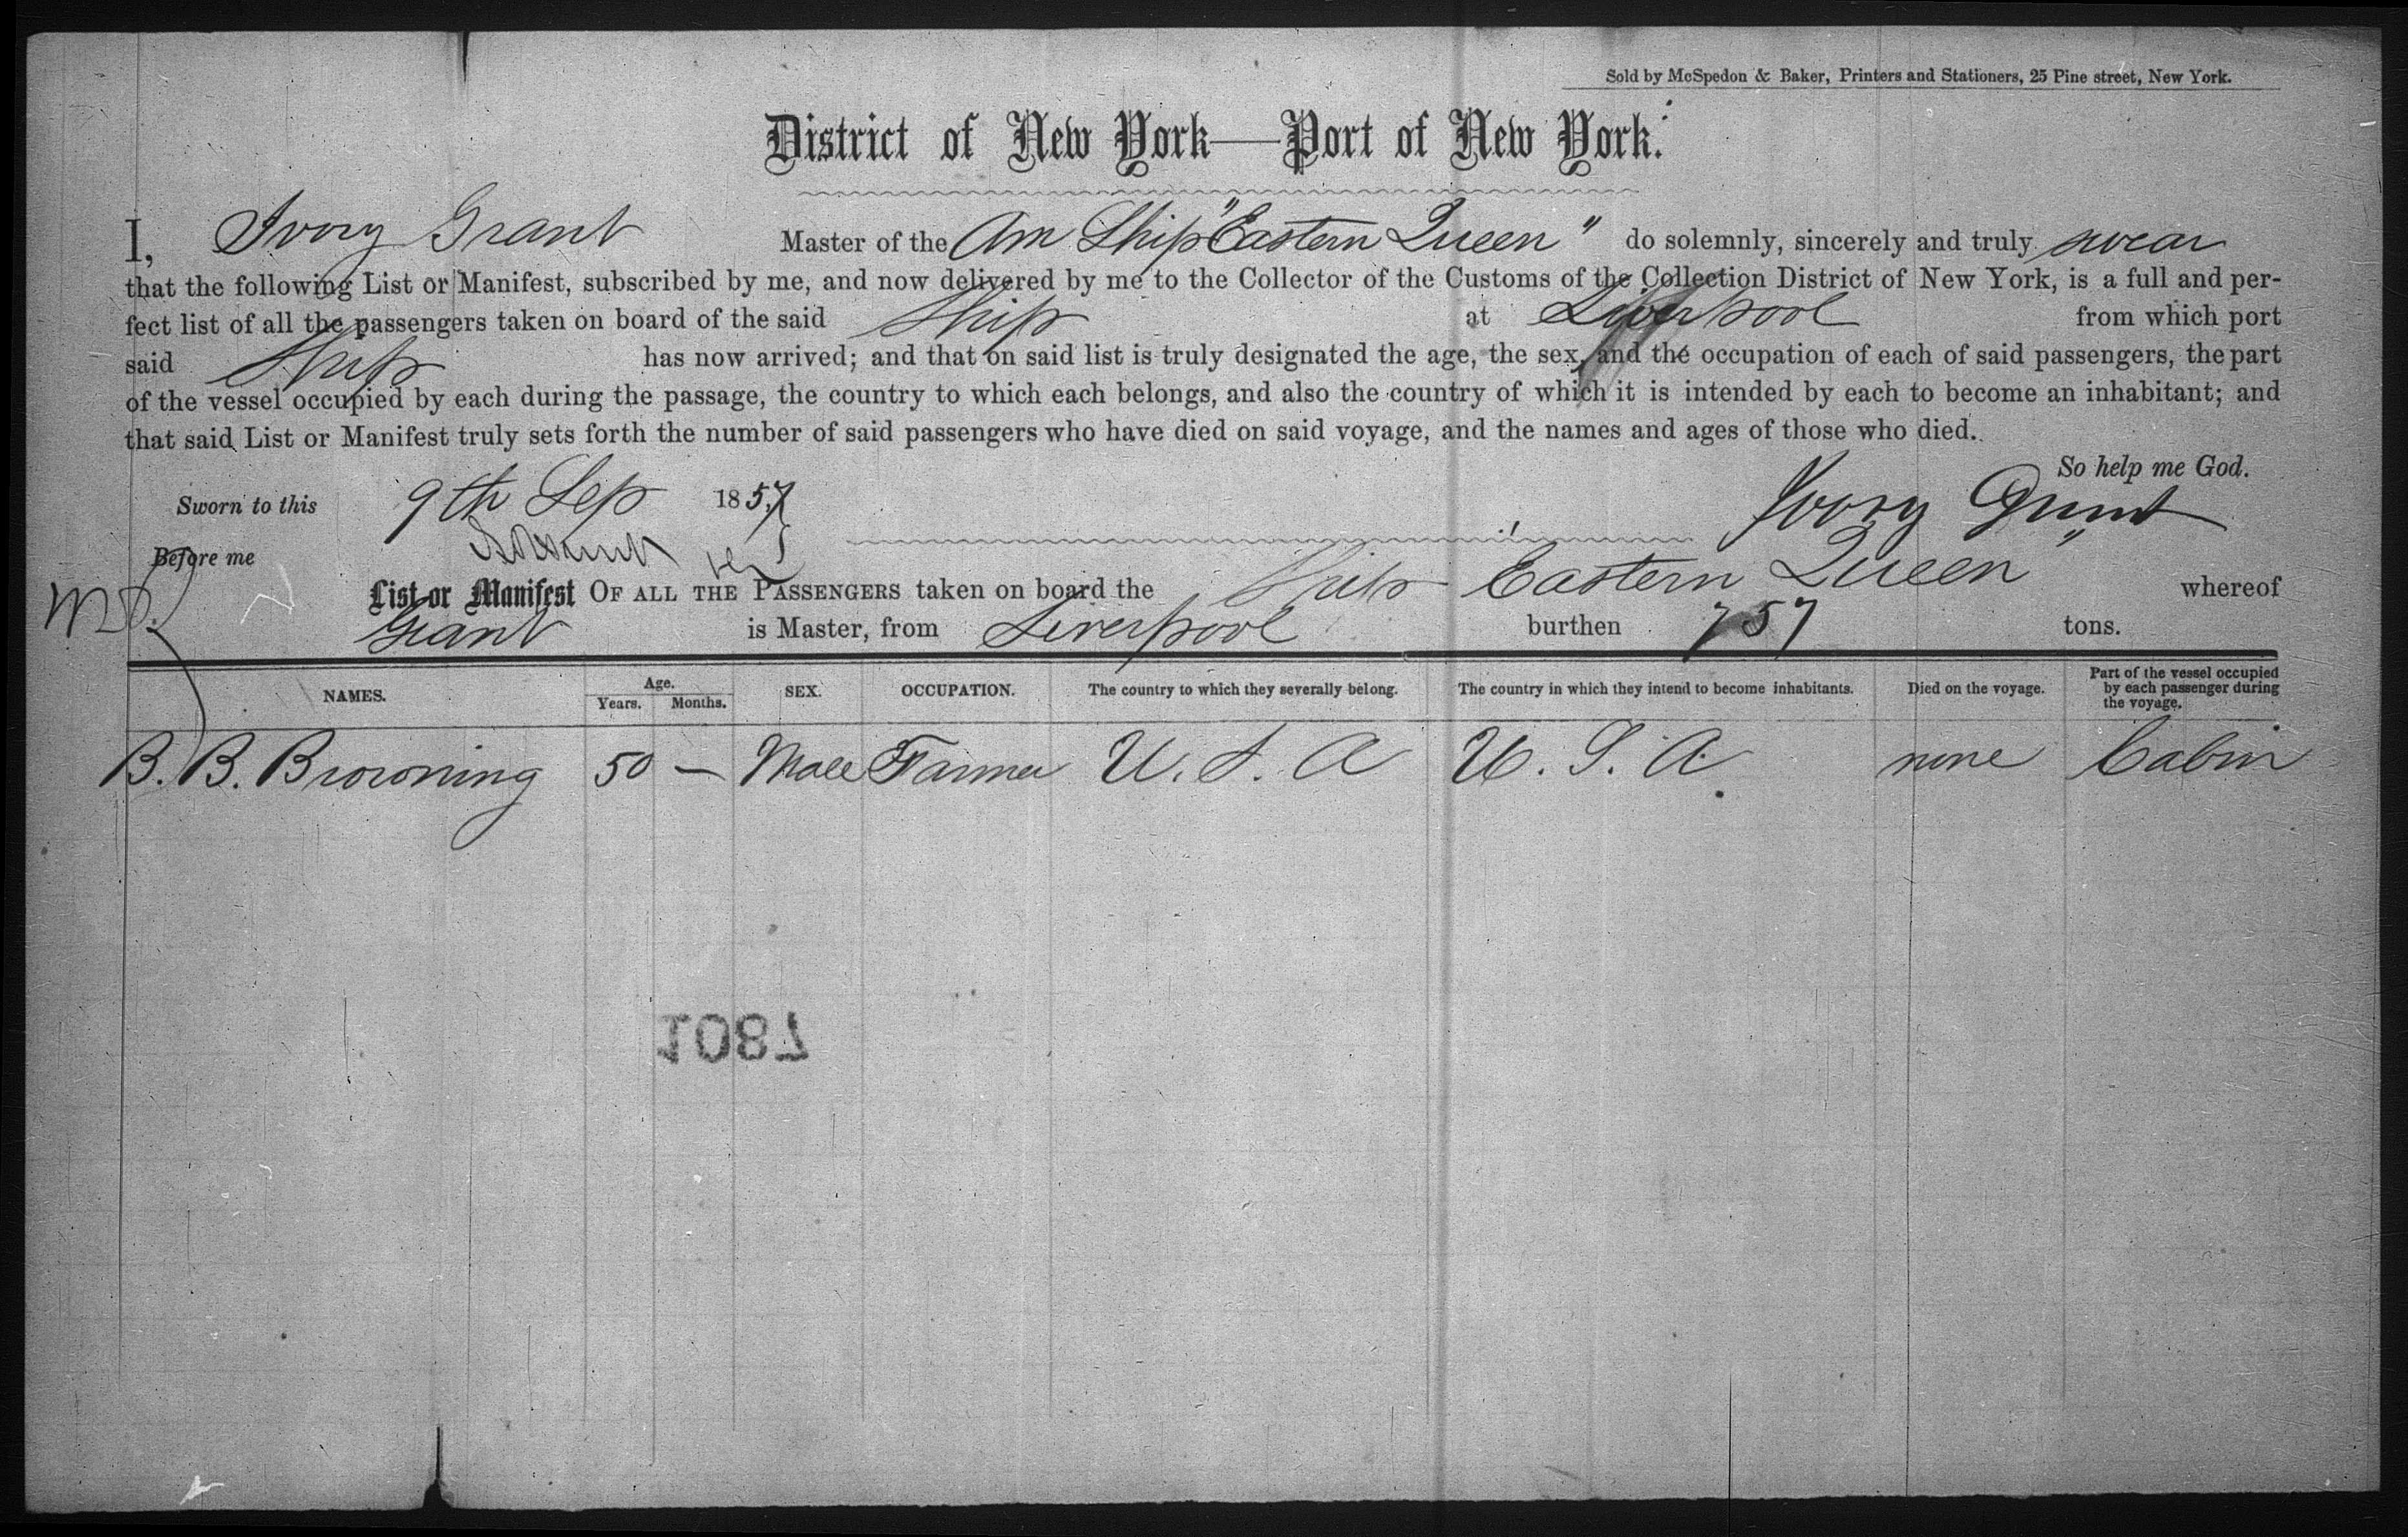 Sold by McSpedon & Baker, Printers and Stationers, 25 Pine street, New York.
District of New York—Port of New York.
I, Ivory Grant Master of the Am Ship "Eastern Queen" do solemnly, sincerely and truly swear
that the following List or Manifest, subscribed by me, and now delivered by me to the Collector of the Customs of the Collection District of New York, is a full and per-
fect list of all the passengers taken on board of the said Ship at Liverpool from which port
said Ship has now arrived; and that on said list is truly designated the age, the sex, and the occupation of each of said passengers, the part
of the vessel occupied by each during the passage, the country to which each belongs, and also the country of which it is intended by each to become an inhabitant; and
that said List or Manifest truly sets forth the number of said passengers who have died on said voyage, and the names and ages of those who died.
So help me God.
Sworn to this 9th Sep 1857 Ivory Grant
Before me
List or Manifest OF ALL THE PASSENGERS taken on board the Ship Eastern Queen" whereof
Grant is Master, from Liverpool burthen 757 tons.
NAMES. Age. Years. Months. SEX. OCCUPATION. The country to which they severally belong. The country in which they intend to become inhabitants. Died on the voyage. Part of the vessel occupied by each passenger during the voyage.
B. B. Browning 50 — Male Farmer U. S. A U. S. A. none Cabin
1087